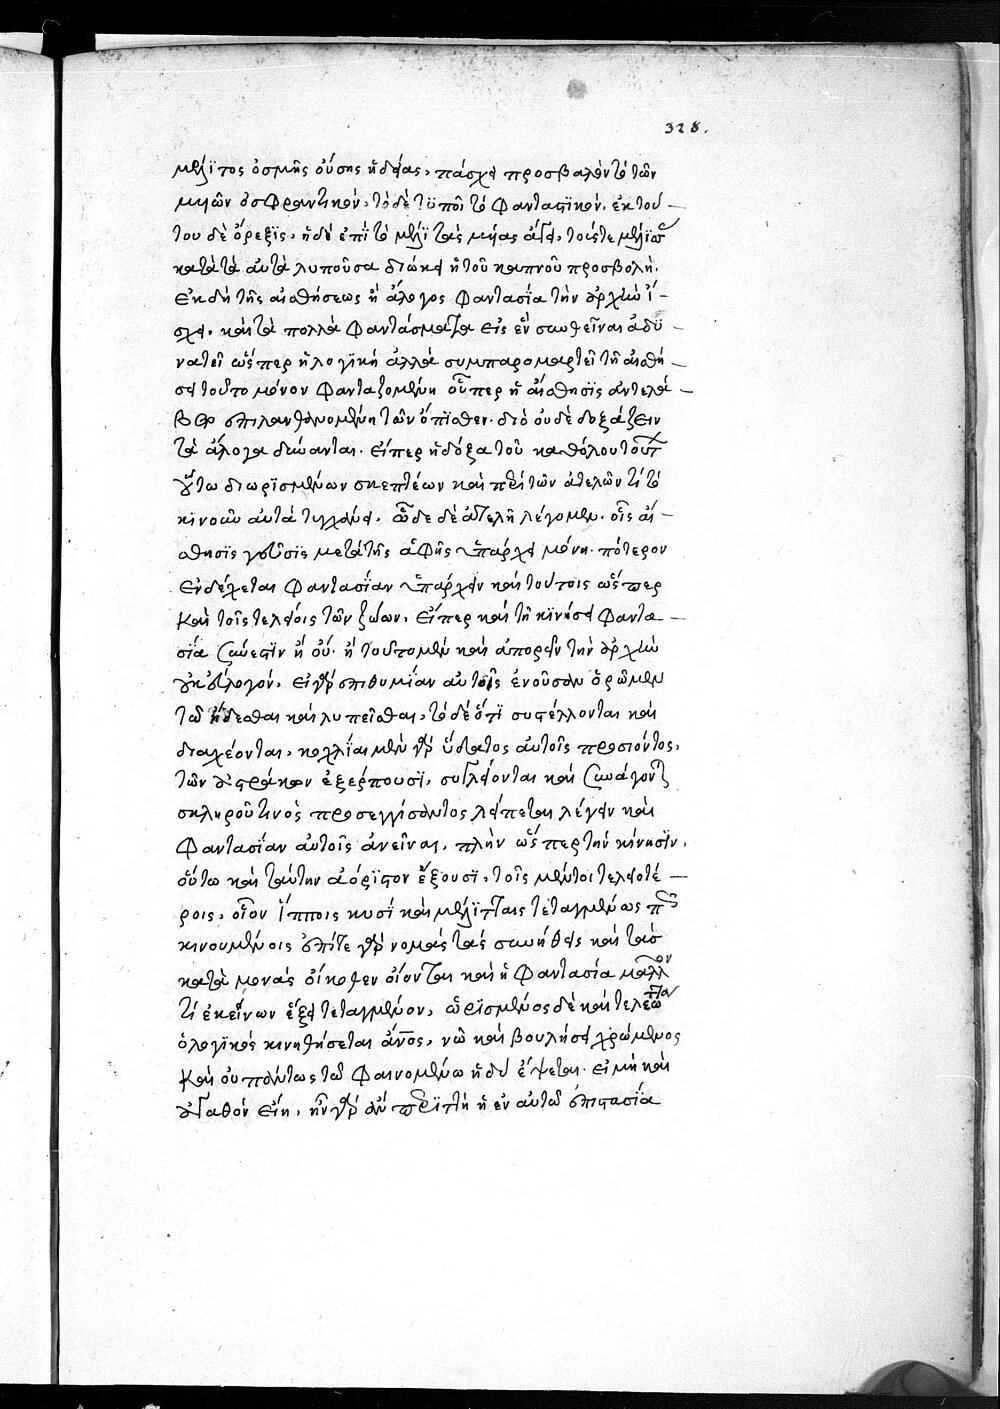 328.
μέλιτος ὀσμῆς οὔσης ἡδείας, πάσχει προσβαλὸν τὸ τῶν
μυιῶν ὀσφραντικόν, τὸ δὲ τυποῖ τὸ φανταστικόν. ἐκ τού-
του δὲ ὄρεξις, ἡ δὲ ἐπὶ τὸ μέλι τὰς μυίας ἄγει, τοὺς τε
κατὰ τὰ αὐτὰ λυποῦσα διώκει ἡ τοῦ καπνοῦ προσβολή.
Ἐκ δὴ τῆς αἰσθήσεως ἡ ἄλογος φαντασία τὴν ἀρχὴν ἴ-
σχει, καὶ τὰ πολλὰ φαντάσματα εἰς ἓν συνθεῖναι ἀδυ-
νατεῖ ὥσπερ ἡ λογικὴ ἀλλὰ συμπαρομαρτεῖ τῇ αἰσθή-
σει τοῦτο μόνον φανταζομένη οὗπερ ἡ αἴσθησις ἀντελά-
βετο ἐπιλανθανομένη τῶν ὄπισθεν. διὸ οὐδὲ δοξάζειν
τὰ ἄλογα δύνανται. εἴπερ ἡ δόξα τοῦ καθόλου
οὕτω διωρισμένων σκεπτέων καὶ περὶ τῶν ἀτελῶν τί τὸ
κινοῦν αὐτὰ τυγχάνει. ὧδε δὲ ἀτελῆ λέγομεν. οἷς αἴ-
σθησις γοῦσις μετὰ τῆς ἁφῆς ὑπάρχει μόνη. πότερον
ἐνδέχεται φαντασίαν ὑπάρχειν καὶ τούτοις ὥσπερ
καὶ τοῖς τελείοις τῶν ζώων. εἴπερ καὶ τῇ κινήσει φαντα-
σία σύνεστιν ἢ οὔ. ἢ τοῦτο μὲν καὶ ἀπορεῖν τὴν ἀρχὴν
οὐκ εὔλογον. εἰ γὰρ ἐπιθυμίαν αὐτοῖς ἐνοῦσαν ὁρῶμεν
τῷ ἥδεσθαι καὶ λυπεῖσθαι, τὸ δὲ ὅτι συστέλλονται καὶ
διαχέονται, κοχλίαι μὲν γὰρ ὕδατος αὐτοῖς προσιόντος,
τῶν ὀστράκων ἐξέρπουσι, συστέλλονται καὶ συνάγονται
σκληροῦ τινὸς προσεγγίσαντος λείπεται λέγειν καὶ
φαντασίαν αὐτοῖς ἐνεῖναι, πλὴν ὥσπερ τὴν κίνησιν,
οὕτω καὶ ταύτην ἀόριστον ἕξουσι, τοῖς μέντοι τελειοτέ-
ροις, οἷον ἵπποις κυσὶ καὶ μελίτταις τεταγμένως πως
κινουμένοις ἐπί τε γὰρ νομὰς τὰς συνήθεις καὶ τὰς
κατὰ μονὰς οἴκοθεν οἴονται καὶ ἡ φαντασία μᾶλλον
τι ἐκείνων ἕξει τεταγμένον, ὡρισμένος δὲ καὶ τελεώτατον
ὁ λογικὸς κινηθήσεται ἄνος, νῷ καὶ βουλήσει χρώμενος
καὶ οὐ πάντως τῷ φαινομένῳ ἡδεῖ ἕψεται. εἰ μὴ καὶ
ἀγαθὸν εἴη, ἦν γὰρ ἂν περιττὴ ἡ ἐν αὐτῷ ἐπιστασία